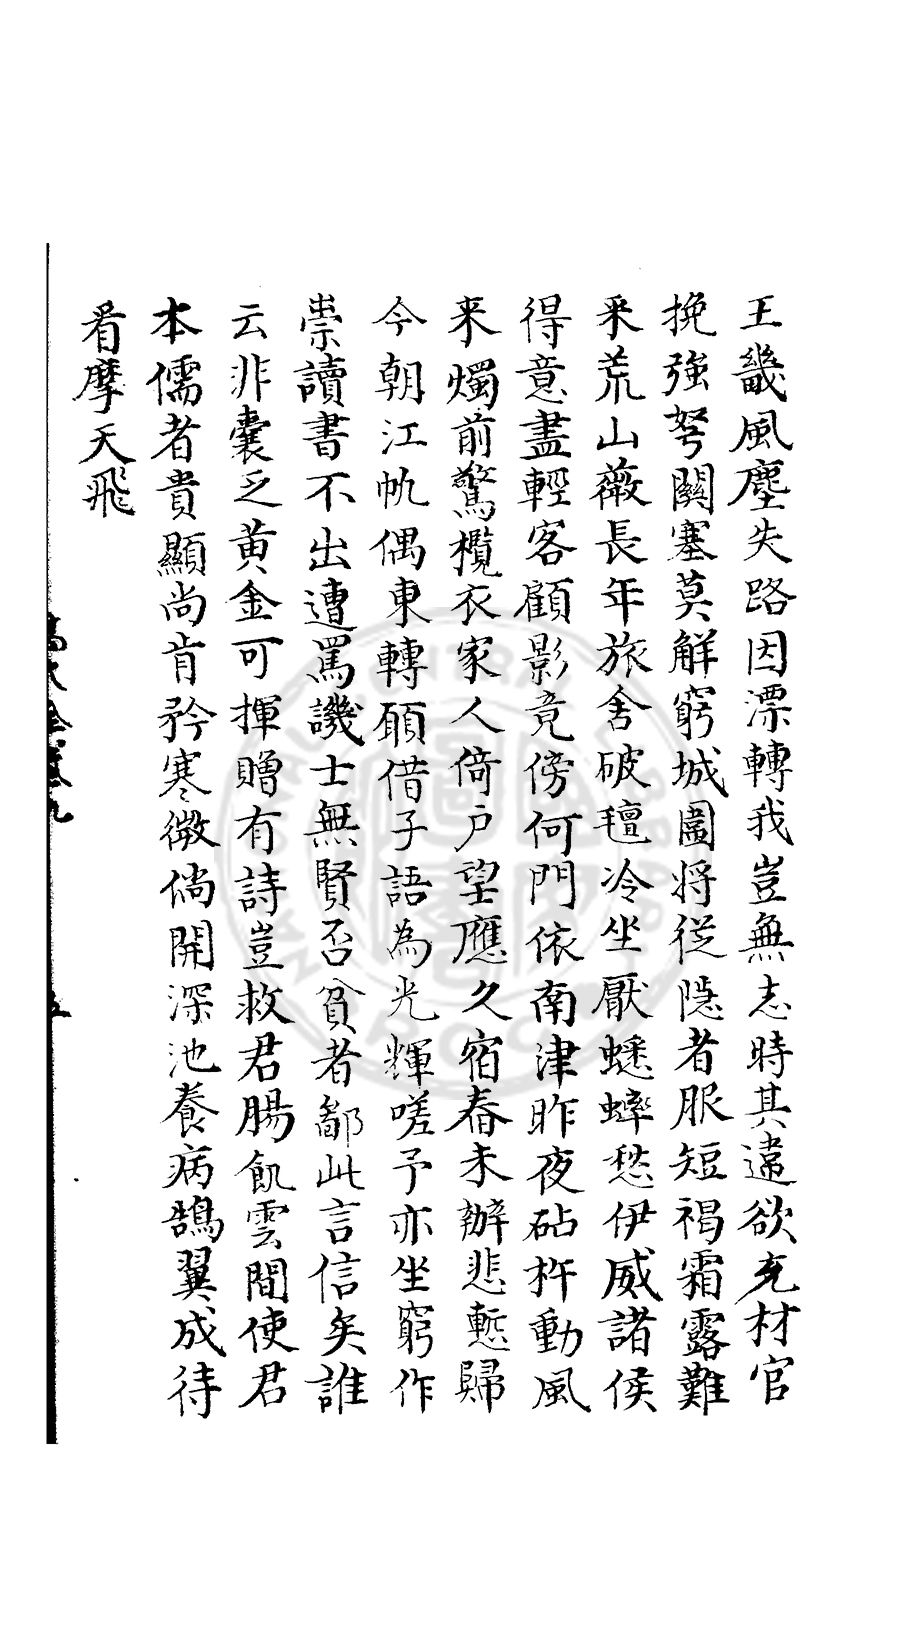 王畿風塵失路因漂轉我豈無志時其違欲充材官
挽強弩關塞莫解窮城圍將從隱者服短褐霜露難
釆荒山薇長年旅舍破氊冷坐厭蟋蟀愁伊威諸侯
得意盡輕客顧影竟傍何門依南津昨夜砧杵動風
来燭前驚攬衣家人倚戶望應久宿舂未辦悲慙歸
今朝江帆偶東轉願借子語為光輝嗟予亦坐窮作
祟讀書不出遭罵譏士無賢否貧者鄙此言信矣誰
云非囊乏黄金可揮贈有詩豈救君腸飢雲間使君
本儒者貴顯尚肯矜寒微倘開深池養病鵠翼成待
看摩天飛